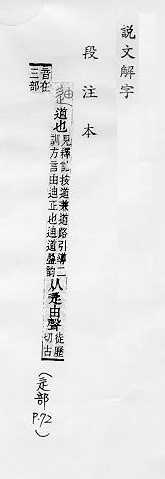 說文解字
段注本
迪道也見釋詁按道兼道路引導二
訓方言由迪正也迪道疊韵从辵由聲徒歷
切古
音在
三部
(辵部
P.72)